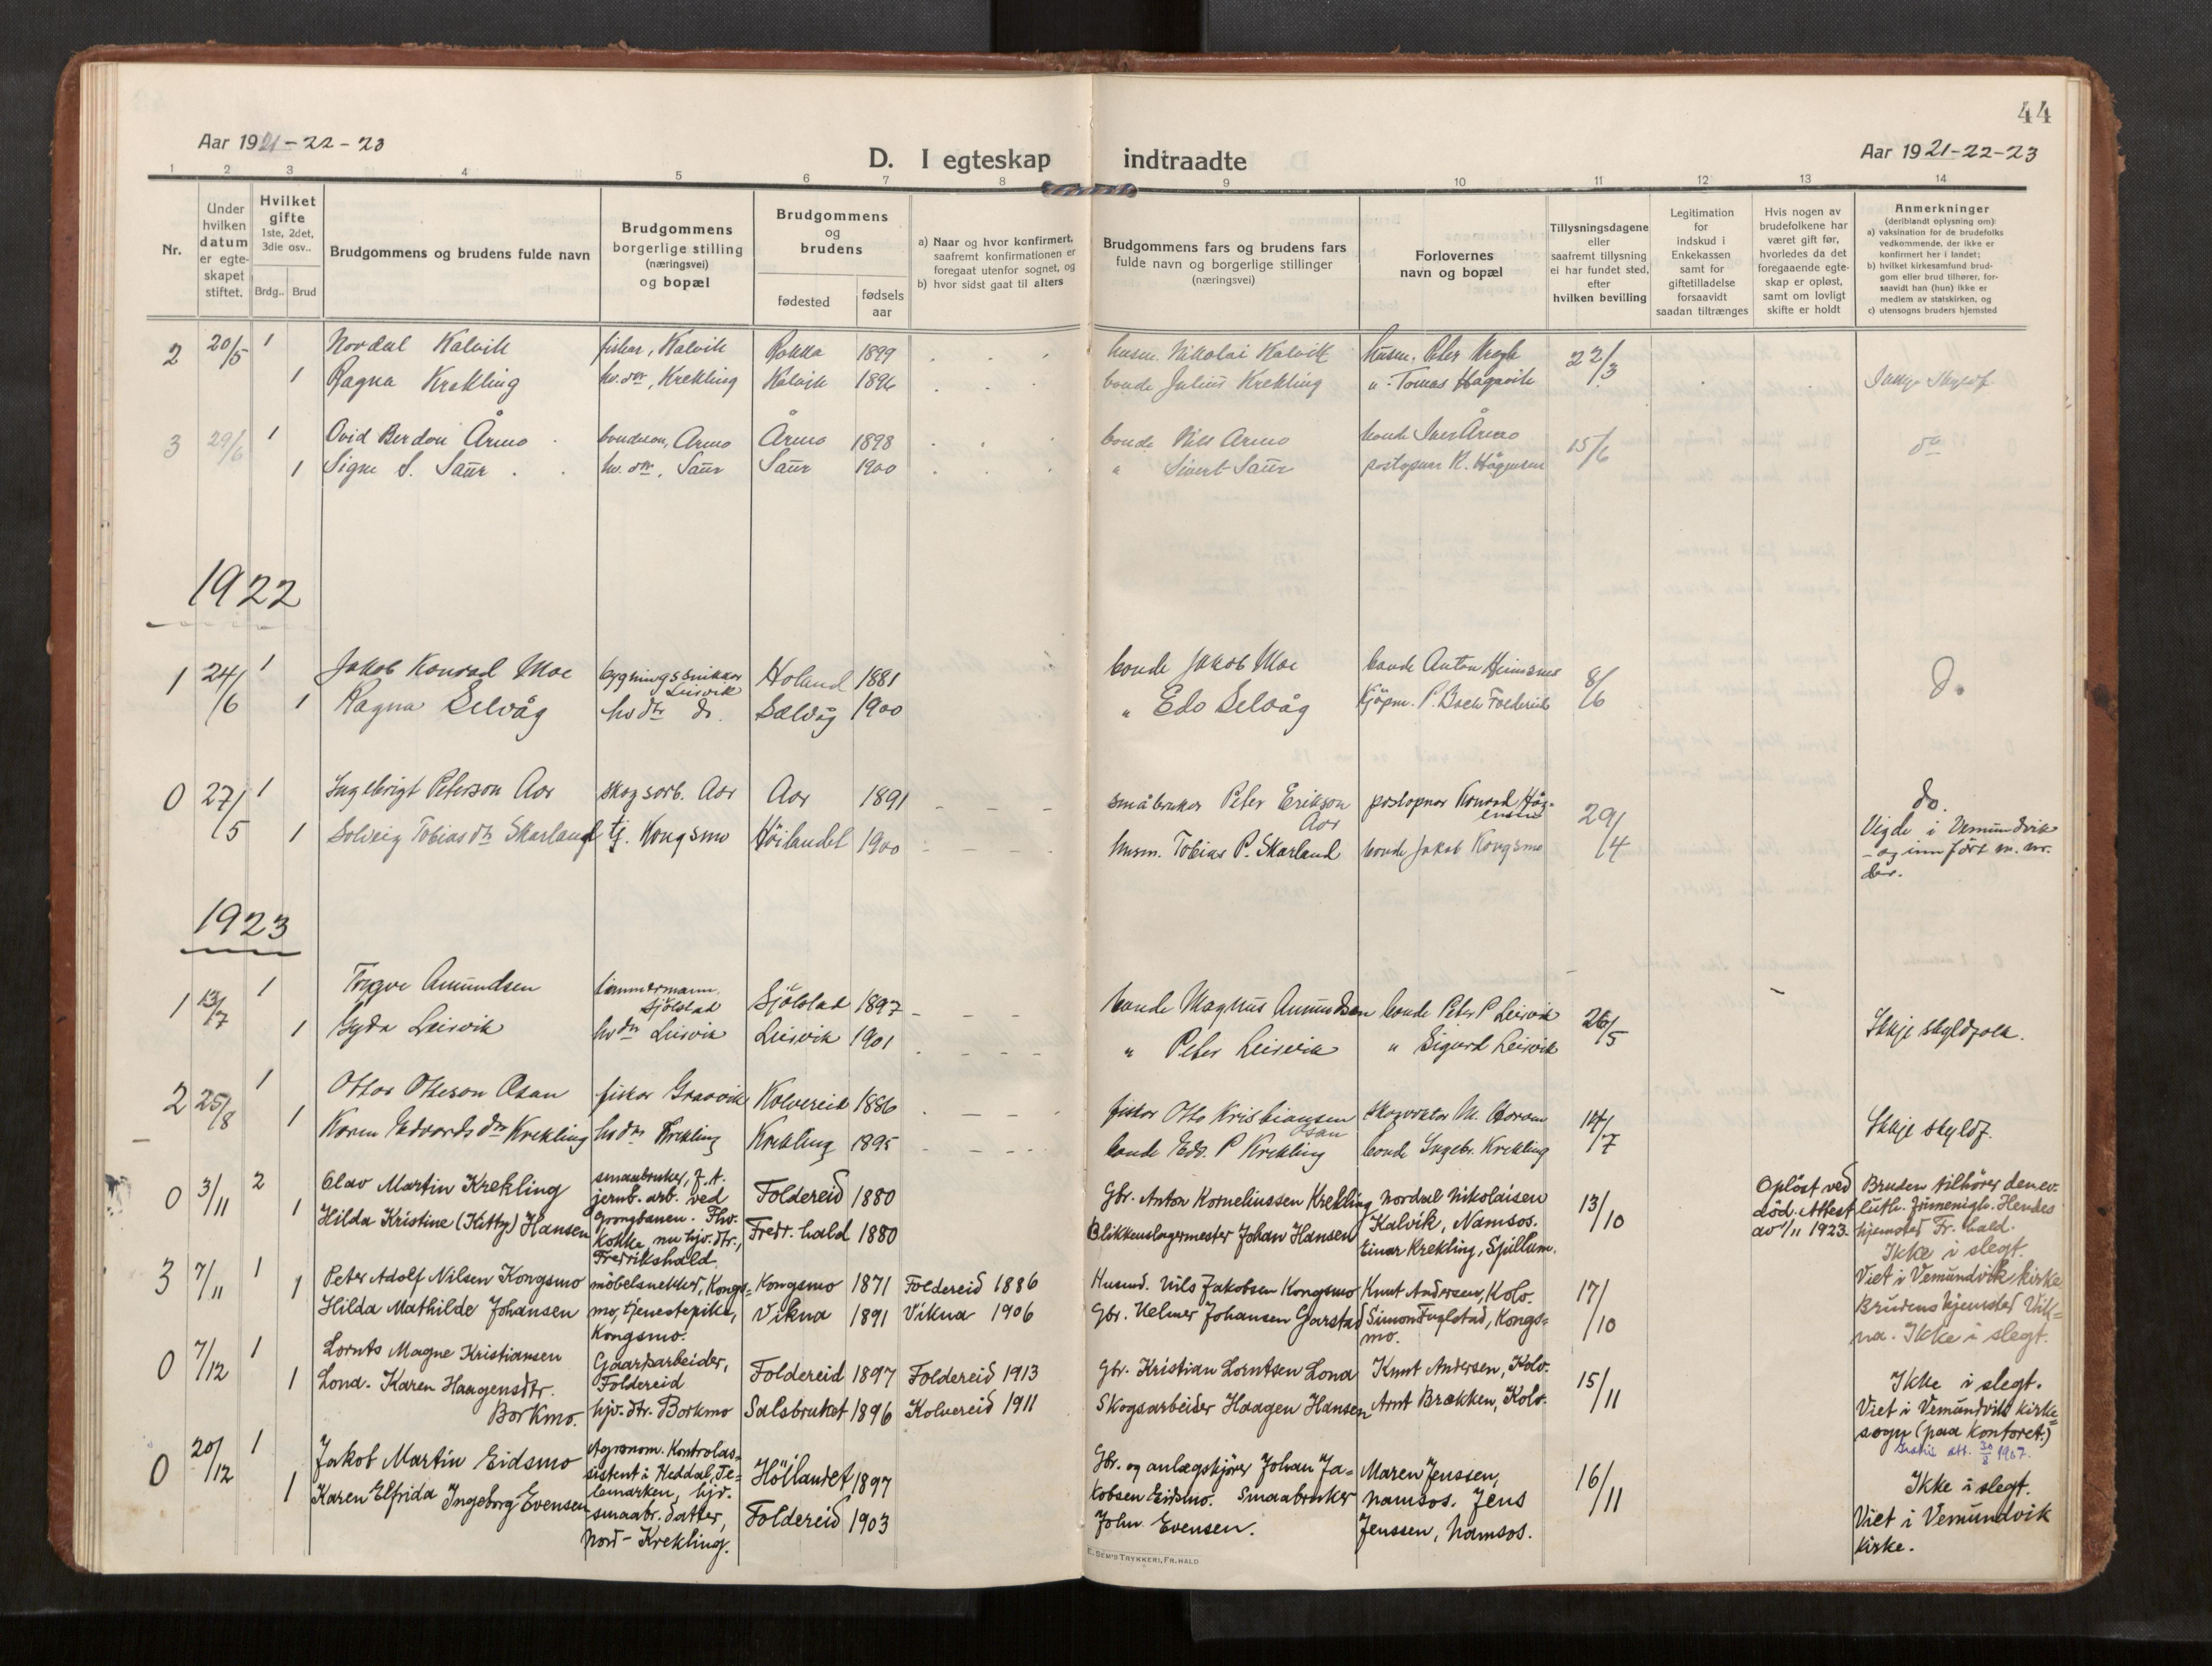 44
Aar 1921-22-23
D. I egteskap indtraadte
Aar 1921-22-23
1 2 3 4 5 6 7 8 9 10 11 12 13 14
Nr.
Under hvilken datum er egteskapet stiftet.
Hvilket gifte 1ste, 2det, 3die osv..
Brdg.. Brud
Brudgommens og brudens fulde navn
Brudgommens borgerlige stilling (næringsvei) og bopæl
Brudgommens og brudens
fødested
fødsels aar
a) Naar og hvor konfirmert, saafremt konfirmationen er foregaat utenfor sognet, og
b) hvor sidst gaat til alters
Brudgommens fars og brudens fars fulde navn og borgerlige stillinger (næringsvei)
Forlovernes navn og bopæl
Tillysningsdagene eller saafremt tillysning ei har fundet sted, efter hvilken bevilling
Legitimation for indskud i Enkekassen samt for giftetilladelse forsaavidt saadan tiltrænges
Hvis nogen av brudefolkene har været gift før, hvorledes da det foregaaende egteskap er opløst, samt om lovligt skifte er holdt
Anmerkninger
(deriblandt oplysning om):
a) vaksination for de brudefolks vedkommende, der ikke er konfirmert her i landet;
b) hvilket kirkesamfund brudgom eller brud tilhører, forsaavidt han (hun) ikke er medlem av statskirken, og
c) utensogns bruders hjemsted
2 20/5 1 Nordal Kalvik fisker, Kalvik 1899 husm. Nikolai Kalvik husm. Peter 22/3
1 Ragna Krekling hv.dtr, Krekling Kalvik 1896 bonde Julius Krekling " Tomas
3 29/6 1 Ovid Berdon Årmo bondesøn, Armo Årmo 1898 bonde Nils Armo bonde Iver Årmo 15/6 do
1 Signe S. Saur hv. dtr, Saur Saur 1900 " Sivert Saur postopner K.
1922
1 24/6 1 Jakob Konrad Moe bygningssnikker Leirvik Holand 1881 bonde Jakob Moe bonde Anton Heimsnes 8/6 do
1 Ragna Selvåg hv dtr do. Sælvåg 1900 " Edv Selvåg Kjöpm. P. Bock Foldereid
0 27/5 1 Ingebrigt Peterson Aar skogsarb. Aar Aar 1891 småbruker Peter Erikson Aar postopner Konrad 29/4 do.
1 Solveig Tobiasdtr Skarland tj. Kongsmo Höilandet 1900 husm. Tobias P. Skarland bonde Jakob Kongsmo Vigde i Vemundvik
- og innfört m. nr. der.
1923
1 13/7 1 Trygve Amundsen tömmermann, Sjölstad Sjölstad 1897 bonde Magnus Amundsen bonde Peter P Leirvik 26/5
1 Gyda Leirvik hv dtr Leirvik Leirvik 1901 " Peter Leirvik " Sigurd Leirvik Ikkje skyldfolk.
2 25/8 1 Ottar Otteson Osan fisker Gravvik Kolvereid 1886 fisker Otto Kristiansen Osan skogvokter M. Horam 14/7
1 Karen Edvardsdtr Krekling hv dtr Krekling Krekling 1895 bonde Edv. P Krekling bonde Ingebr. Krekling Ikkje skyldf.
0 3/11 2 Olav Martin Krekling smaabruker, f.t. jernb. arb. ved Grongbanen. Foldereid 1880 Gbr. Anton Korneliussen Krekling Nordal Nikolaisen Kalvik, Namsos. 13/10 Oplöst ved död. Attest av 1/11 1923. Bruden tilhörer den ev. luth. frimenigh. Hendes hjemsted Fr. hald.
1 Hilda Kristine (Kitty) Hansen Fhv. Kokke, nu hjv. dtr., Fredrikshald Fredr. hald 1880 Blikkenslagermester Johan Hansen Einar Krekling, Spillum. Ikke i slegt.
3 7/11 1 Peter Adolf Nilsen Kongsmo möbelsnekker, Kongs- Kongsmo 1871 Foldereid 1886 Husmd. Nils Jakobsen Kongsmo Knut Andersen, Kolv. 17/10 Viet i Vemundvik kirke
1 Hilda Mathilde Johansen mo, tjenestepike, Kongsmo. Vikna 1891 Vikna 1906 Gbr. Helmer Johansen Garstad Simon Fuglstad, Kongsmo. Brudens hjemsted Vikna. Ikke i slegt.
0 7/12 1 Lornts Magne Kristiansen Lona. Gaardsarbeider, Foldereid Foldereid 1897 Foldereid 1913 Gbr. Kristian Lorntsen Lona Knut Andersen, Kolv. 15/11 Ikke i slegt.
1 Karen Haagensdtr. Borkmo. hjv. dtr. Borkmo Salsbruket 1896 Kolvereid 1911 Skogsarbeider Haagen Hansen Arnt Brækken, Kolv. Viet i Vemundvik kirke-
sogn (paa kontoret.)
Gratis att. 30/8 1967.
0 20/12 1 Jakob Martin Eidsmo Agronom. Kontrolas-
sistent i Heddal, Te-
lemarken, Höilandet 1897 Gbr. og anlægskjörer Johan Ja-
kobsen Eidsmo. Maren Jenssen, Namsos. 16/11 Ikke i slegt.
1 Karen Elfrida Ingeborg Evensen hjv. smaabr. datter, Nord-Krekling. Foldereid 1903 Smaabruker John Evensen. Jens Jenssen, Namsos. Viet i Vemundvik kirke.
E. SEM'S TRYKKERI, FR.HALD